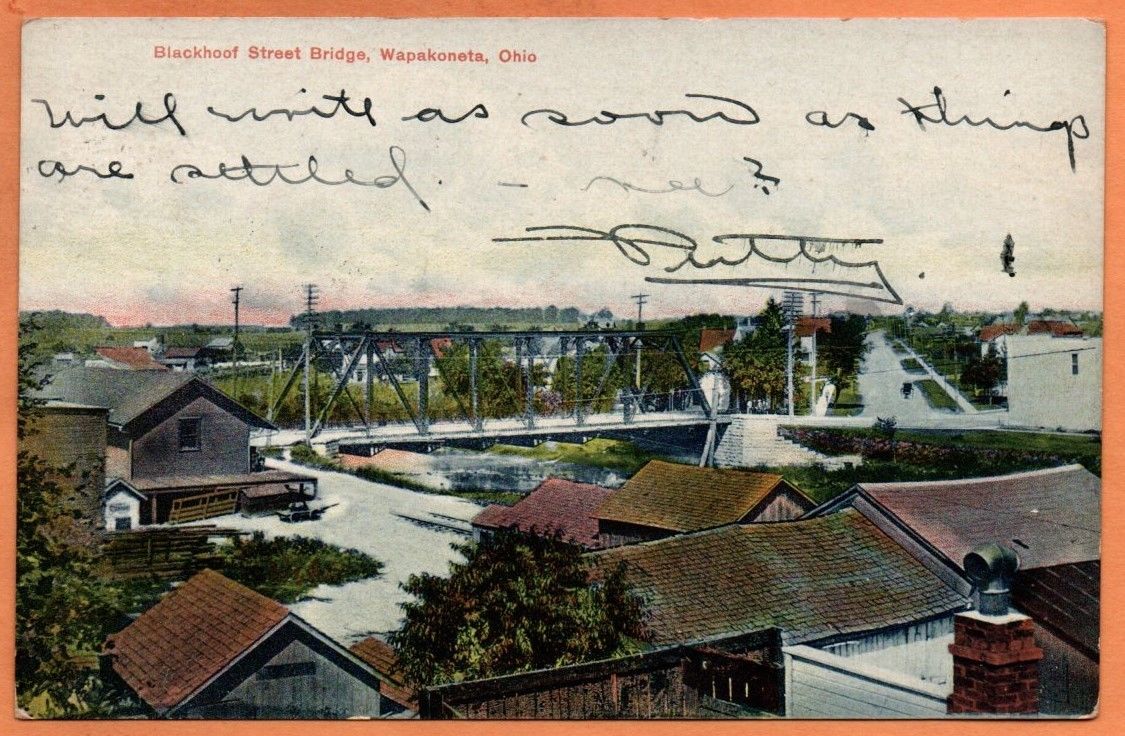 Blackhoof Street Bridge, Wapakoneta, Ohio
Will write as soon as things
are settled. - see?